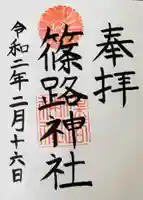 奉拝
篠路神社
令和二年二月十六日